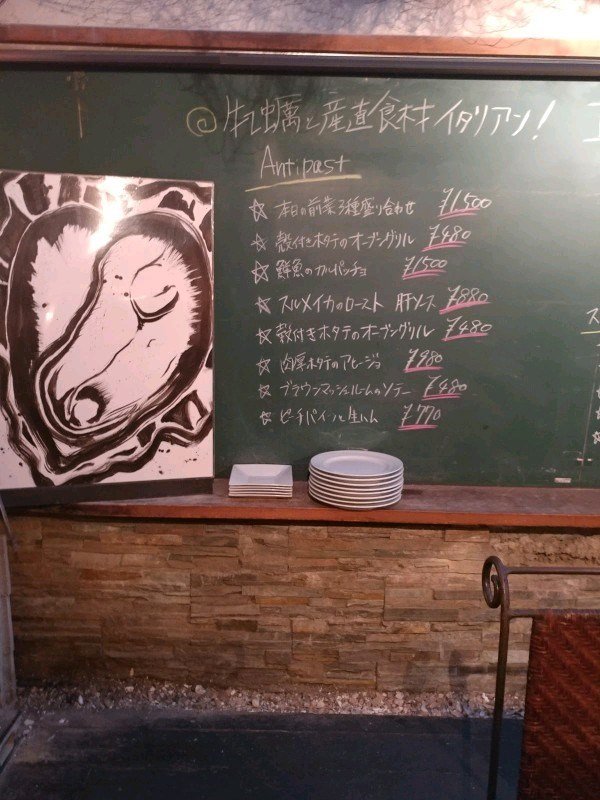 牡蠣と産直食材イタリアン!
Antipast
☆ 本日の前菜3種盛り合わせ ¥1500
☆ 殻付きホタテのオーブングリル ¥480
☆ 鮮魚のカルパッチョ ¥1500
☆ スルメイカのロースト 肝ソース ¥880
☆ 殻付きホタテのオーブングリル ¥480
☆ 肉厚ホタテのアヒージョ ¥980
☆ ブラウンマッシュルームのソテー ¥480
☆ ピーチパインと生ハム ¥770